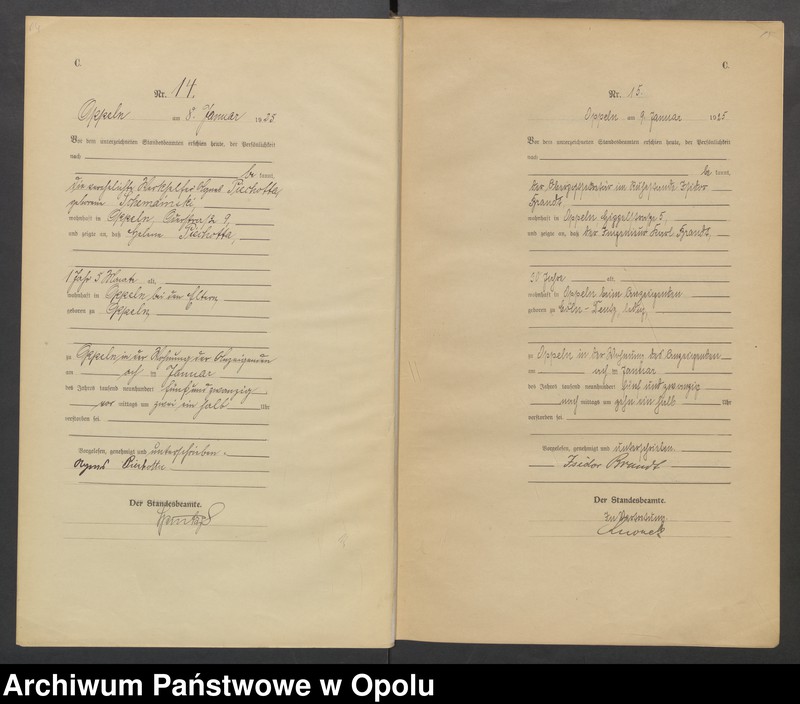 C.
Nr. 14.
Oppeln am 8. Januar 1925
Vor dem unterzeichneten Standesbeamten erschien heute, der Persönlichkeit
nach
be kannt,
die verehelichte Agnes Piechotta,
geborene
wohnhaft in Oppeln, 9,
und zeigte an, daß Piechotta,
1 Jahr 5 Monate alt,
wohnhaft in Oppeln bei den Eltern
geboren zu Oppeln
zu Oppeln, in der Wohnung der Anzeigenden
am acht en Januar
des Jahres tausend neunhundert fünfundzwanzig
vor mittags um zwei ein halb Uhr
verstorben sei.
Vorgelesen, genehmigt und unterschrieben.
Agnes
Der Standesbeamte.
C.
Nr. 15
Oppeln am 9. Januar 1925
Vor dem unterzeichneten Standesbeamten erschien heute, der Persönlichkeit
nach
be kannt,
der im Ruhestande Isidor
Brandt,
wohnhaft in Oppeln 5,
und zeigte an, daß der Ingenieur Brandt,
29 Jahre alt,
wohnhaft in Oppeln beim Anzeigenden
geboren zu Cöln-Deutz, ledig,
zu Oppeln in der Wohnung des Anzeigenden
am acht en Januar
des Jahres tausend neunhundert fünf und zwanzig
nach mittags um zehn ein halb Uhr
verstorben sei.
Vorgelesen, genehmigt und unterschrieben.
Isidor Brandt
Der Standesbeamte.
In Vertretung
Archiwum Państwowe w Opolu